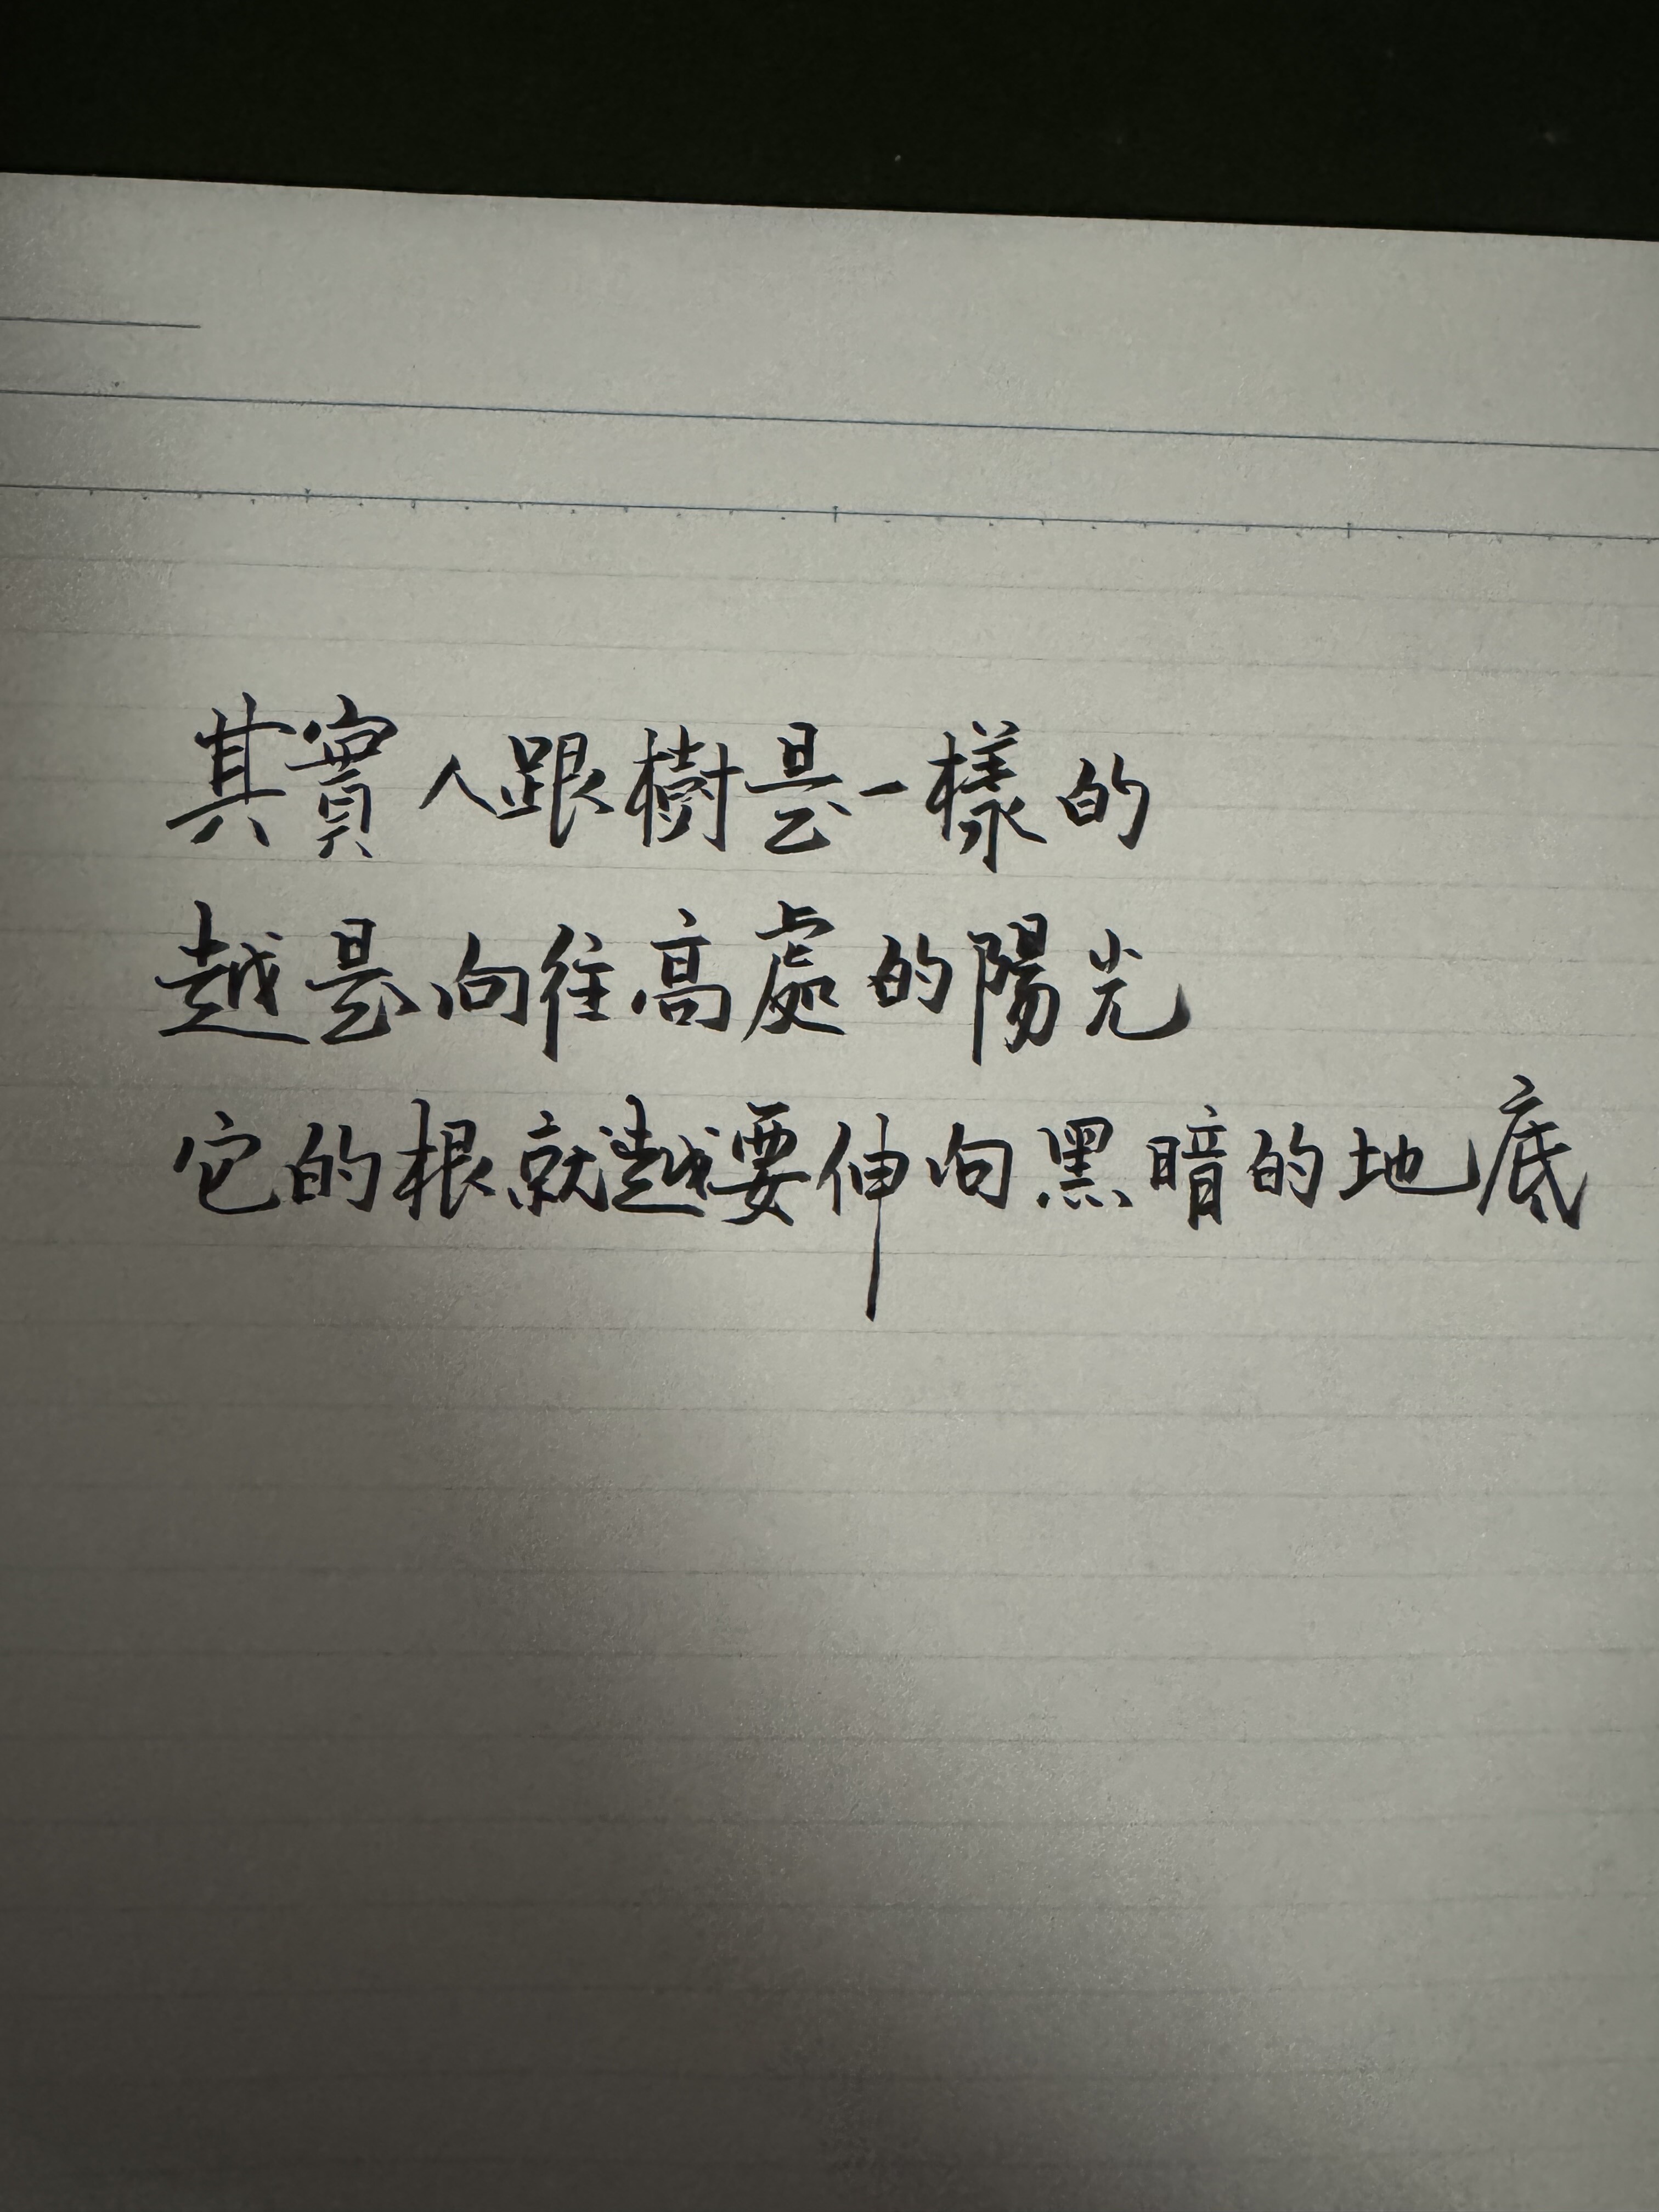 其實人跟樹是一樣的
越是向往高處的陽光
它的根就越要伸向黑暗的地底